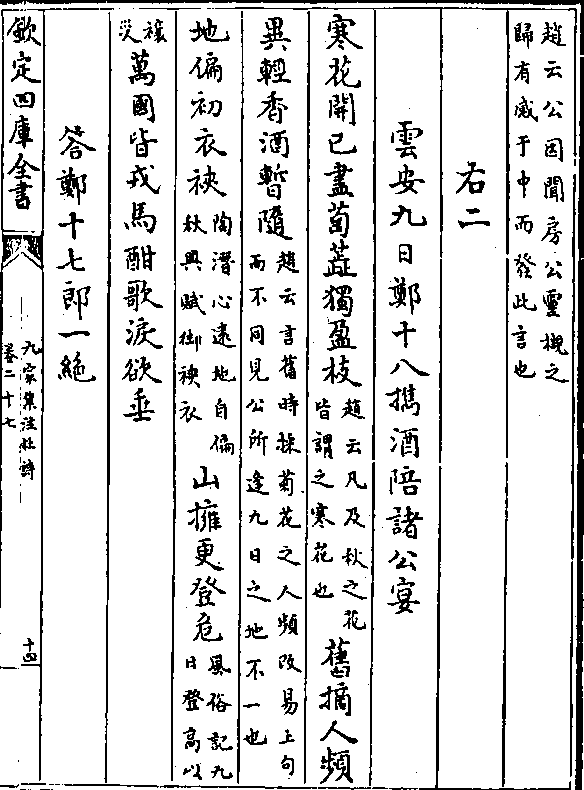 趙云公因聞房公靈櫬之
歸有感于中而發此言也
右二
雲安九日鄭十八攜酒陪諸公宴
寒花開已盡菊蕋獨盈枝趙云凡及秋之花皆謂之寒花也舊摘人頻
異輕香酒暫隨趙云言舊時採菊花之人頻改易上句而不同見公所逢九日之地不一也
地偏初衣裌陶潛心遠地自偏秋興賦御裌衣山擁更登危風俗記九日登高以
禳災萬國皆戎馬酣歌淚欲垂
答鄭十七郎一絶
欽定四庫全書
九家集注杜詩
卷二十七
十四